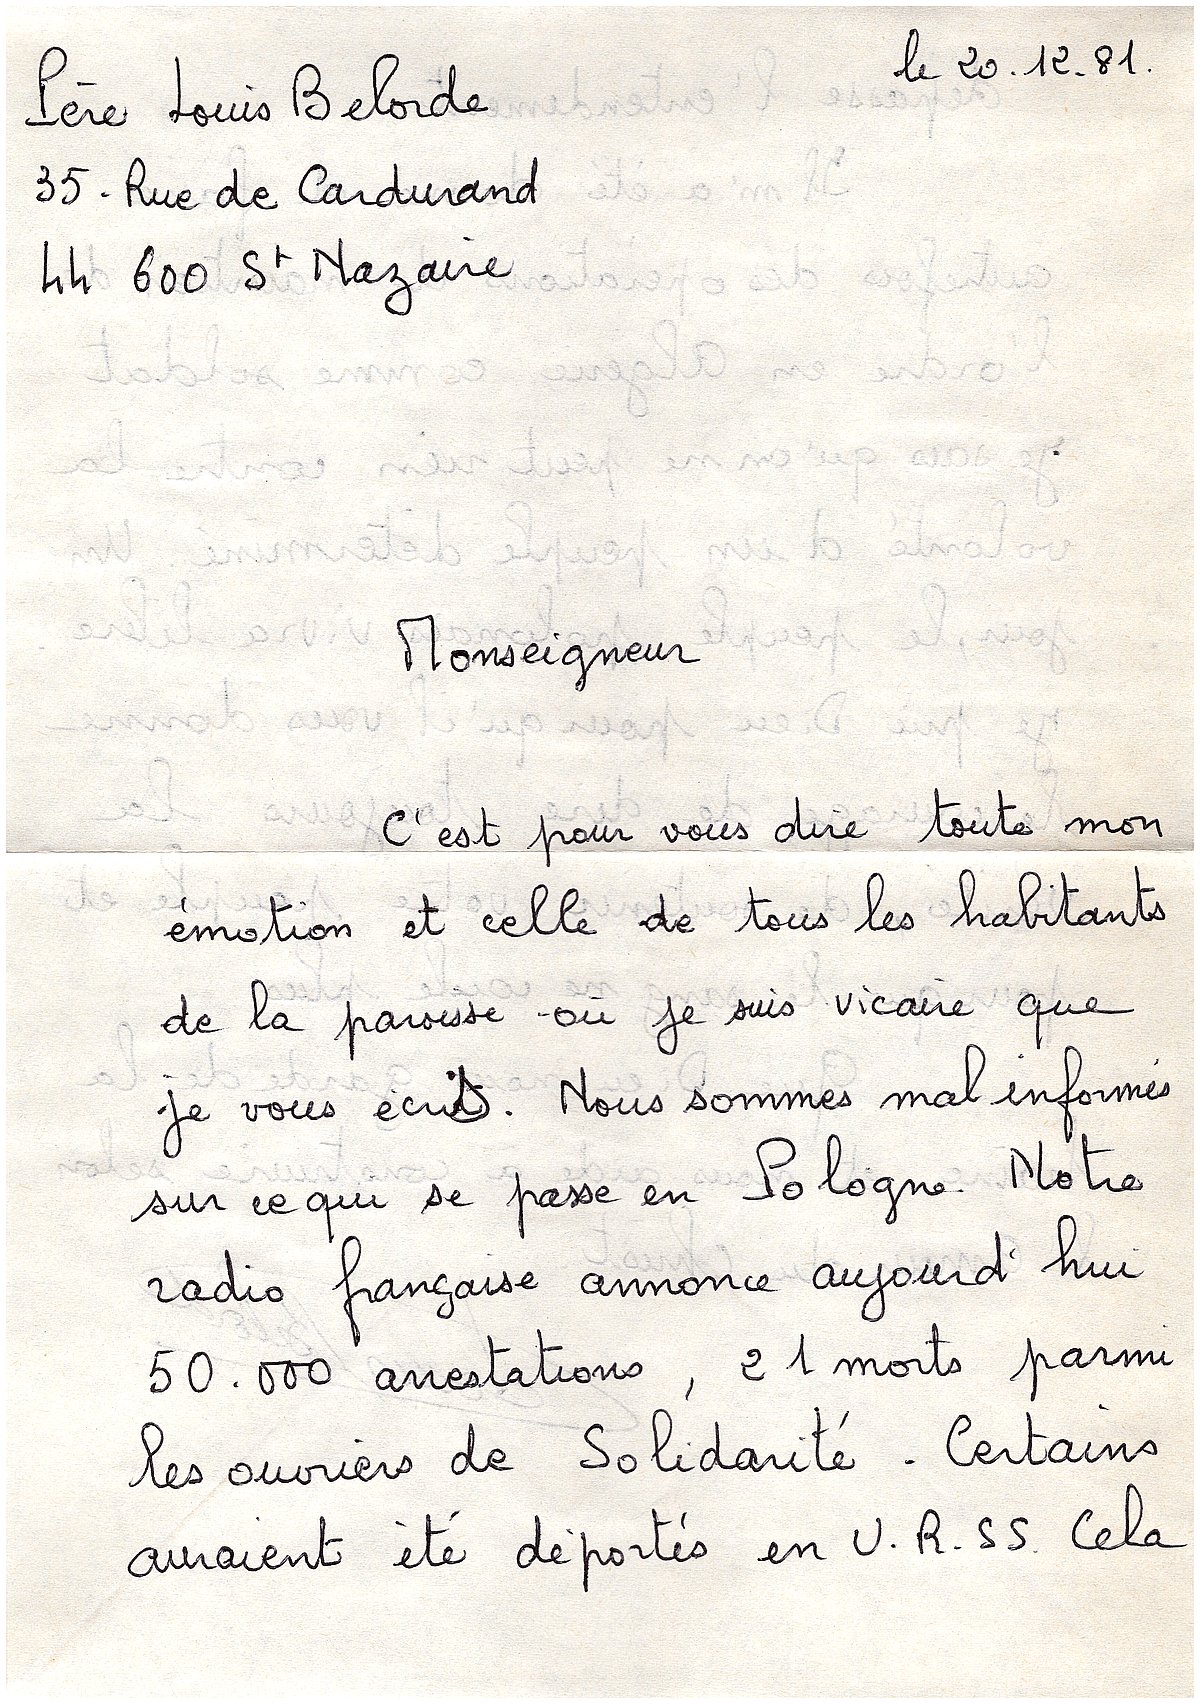 le 20.12.81.
Père Louis Belorde
35. Rue de Cardurand
44 600 St Nazaire
Monseigneur
C'est pour vous dire toute mon
émotion et celle de tous les habitants
de la paroisse où je suis vicaire que
je vous écris. Nous sommes mal informés
sur ce qui se passe en Pologne. Notre
radio française annonce aujourd'hui
50.000 arrestations, 21 morts parmi
les ouvriers de Solidarité. Certains
auraient été déportés en U.R.SS. Cela